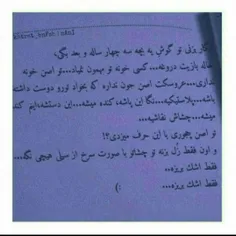 بزنی تو گوش یه بچه سه چهار ساله و بعد بگی،
خاله بازیت دروغه...کسی خونه تو میمون نمیاد...تو اصن خونه
نداری...عروسکت اصن جون نداره که بخواد تورو دوست داشته
باشه...پلاستیکیه...نگا این پاشه، کنده میشه...این دستشه،اینم کنده
میشه...چشاش نقاشیه...
تو اصن چجوری با این حرف میزدی؟!
و اون فقط زل بزنه تو چشاتو با صورت سرخ از سیلی هیچی نگه...
فقط اشک بریزه...
فقط اشک بریزه...